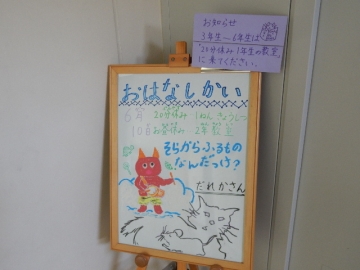 お知らせ
3年生〜6年生は
20分休み1年生の教室
に来てください。
おはなしかい
6年 20分休み 1ねんきょうしつ
10日お昼休み 2年教室
そらからふるもの
なんだっけ?
だれかさん